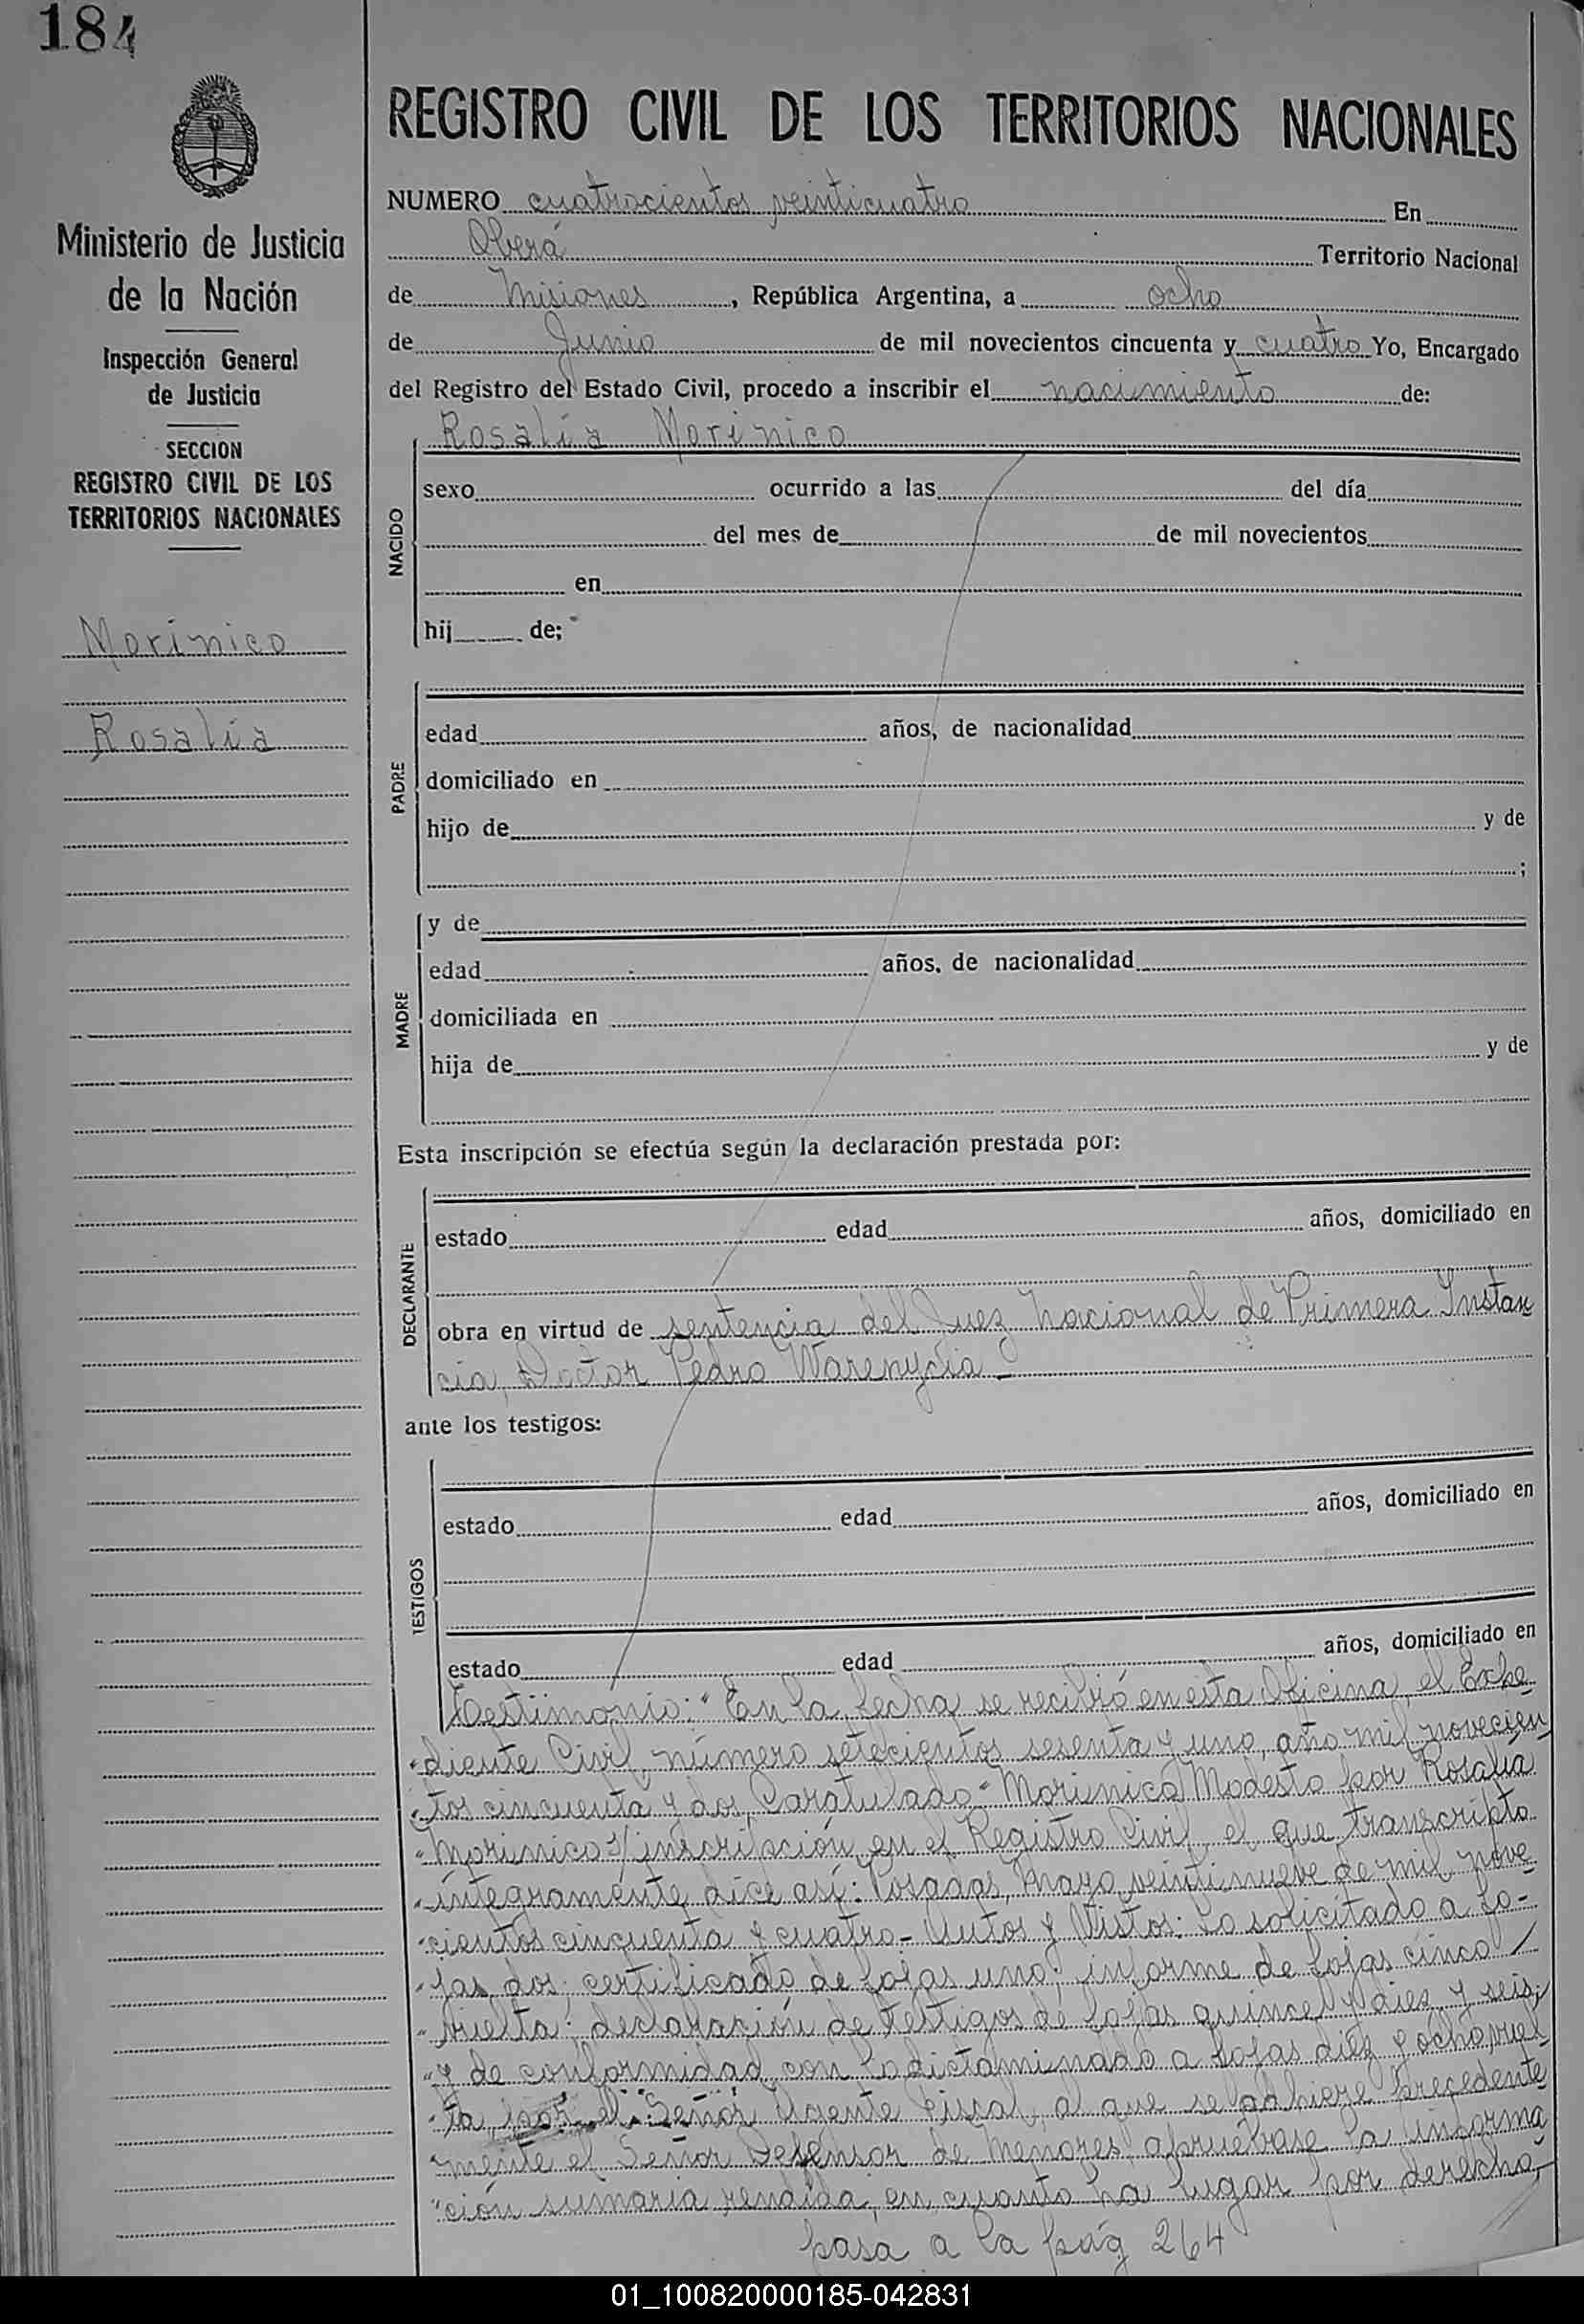 184
Ministerio de Justicia
de la Nación
Inspección General
de Justicia
SECCION
REGISTRO CIVIL DE LOS
TERRITORIOS NACIONALES
Morínico
Rosalía
REGISTRO CIVIL DE LOS TERRITORIOS NACIONALES
NUMERO cuatrocientos veinticuatro En
Oberá Territorio Nacional
de Misiones, República Argentina, a ocho
de Junio de mil novecientos cincuenta y cuatro Yo, Encargado
del Registro del Estado Civil, procedo a inscribir el nacimiento de:
Rosalía Morínico
NACIDO
sexo ocurrido a las del día
del mes de de mil novecientos
en
hij de;
PADRE
edad años, de nacionalidad
domiciliado en
hijo de y de
;
MADRE
y de
edad años, de nacionalidad
domiciliada en
hija de y de
Esta inscripción se efectúa según la declaración prestada por:
DECLARANTE
estado edad años, domiciliado en
obra en virtud de sentencia del Juez Nacional de Primera Instan
cia, Doctor Pedro Warenycia.-
ante los testigos:
TESTIGOS
estado edad años, domiciliado en
estado edad años, domiciliado en
Testimonio: "En la fecha se recibió en esta Oficina, el Expe
"diente Civil número setecientos sesenta y uno, año mil novecien
"tos cincuenta y dos, Caratulado "Morinico Modesto por Rosalía
"Morinico s/inscripción en el Registro Civil, el que transcripto
"íntegramente dice así: Posadas, Mayo veintinueve de mil nove
"cientos cincuenta y cuatro.- Autos y Vistos: Lo solicitado a fo-
"jas dos; certificado de fojas uno; informe de fojas cinco
"vuelta; declaración de testigos de fojas quince y diez y seis;
"y de conformidad con lo dictaminado a fojas diez y ocho vuel
"ta por el Señor Agente Fiscal, al que se adhiere precedente
"mente el Señor Defensor de Menores, apruébase la informa
"ción sumaria rendida, en cuanto ha lugar por derecho,-
pasa a la pág 264
01_100820000185-042831